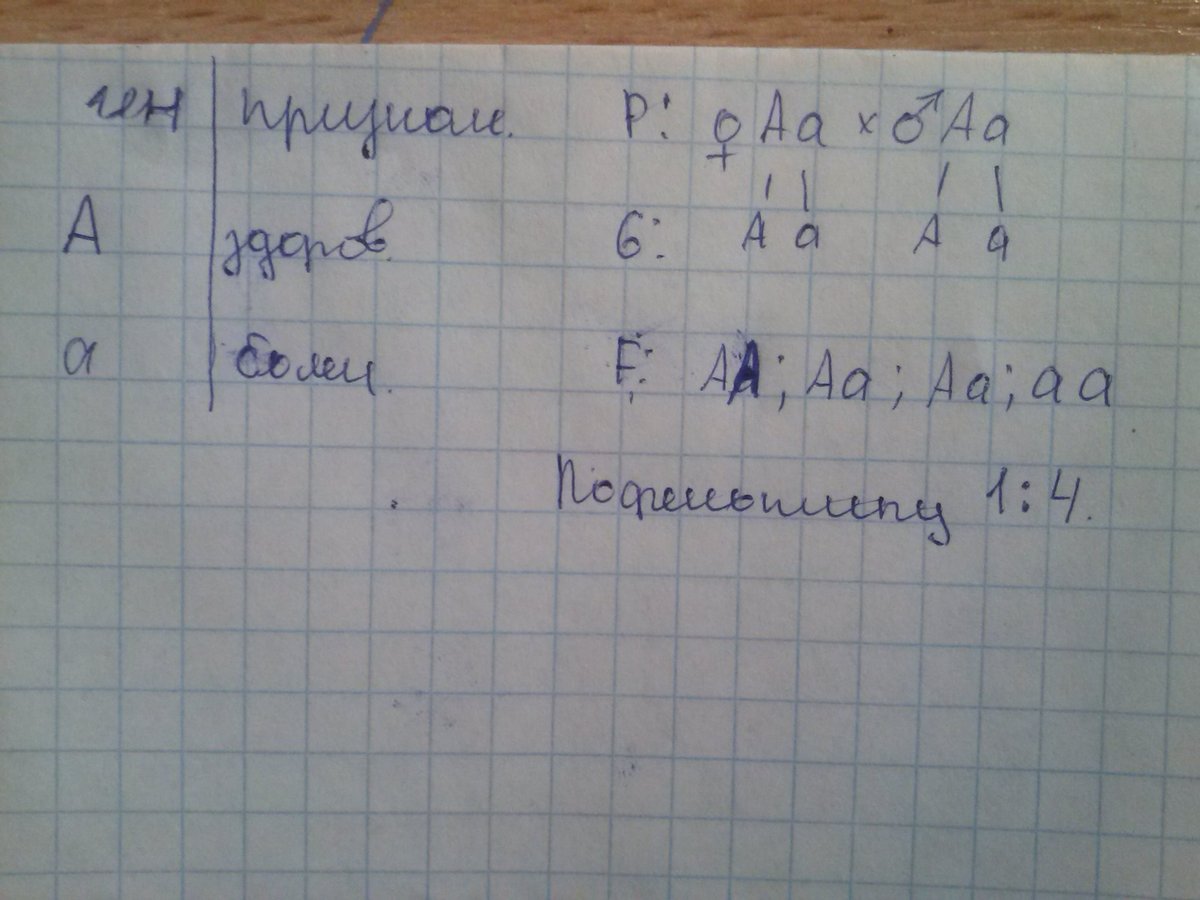 ген признак. P: ♀ Aa × ♂ Aa
A здоров. G: A a A a
a болен. F: AA; Aa; Aa; aa
По фенотипу 1:4.